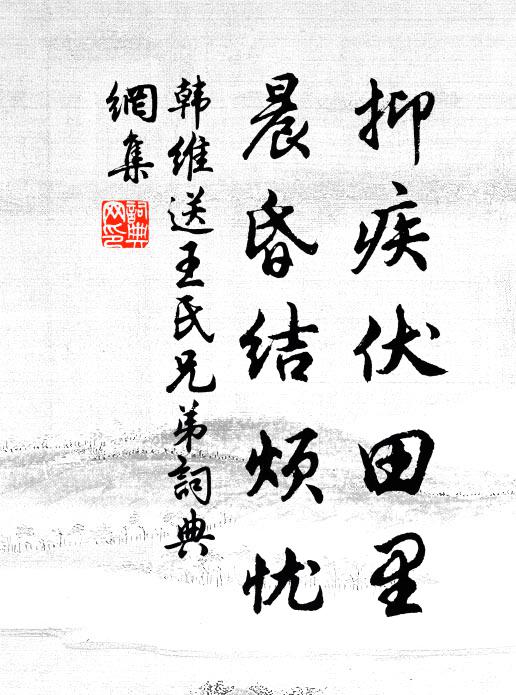 抑疾伏田里
晨昏结烦忧
韩维送王氏兄弟詞典
網集
詞典
网印